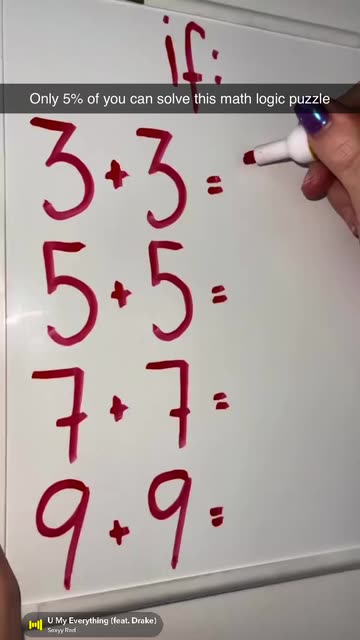 if:
Only 5% of you can solve this math logic puzzle
3+3=
5+5=
7+7=
9+9=
U My Everything (feat. Drake)
Sexyy Red